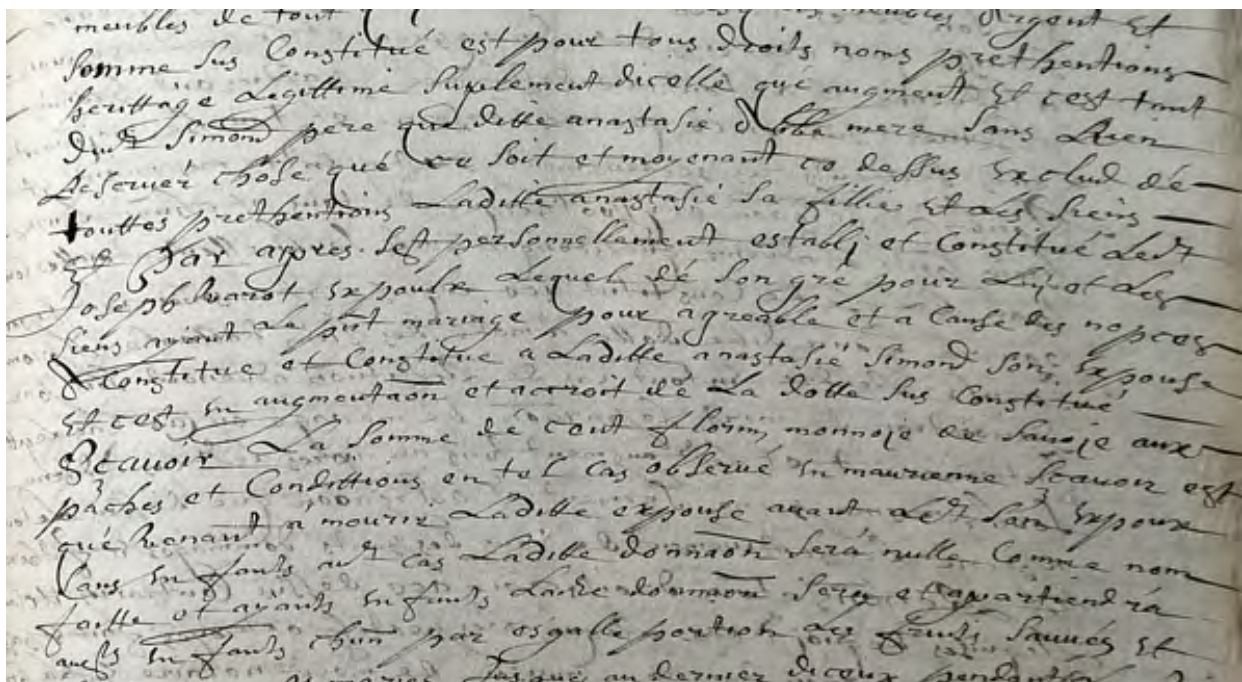 meubles de tout argent et
somme sus Constitué est pour tous droits noms prethentions
herittage Legittime suplement dicelle que augment et cest tant
dudt Simond pere que ditte anastasie mere sans Rien
Reserver chose que ce soit et moyenant ce dessus Exclud de
touttes prethentions Laditte anastasie sa fillie et Les siens
Et Par apres sest personnellement establj et Constitué Ledt
Joseph Expoulx Lequel de son gre pour Luj et Les
siens ayant Le pnt mariage pour agreable et a Cause des nopces
a Constitue et Constitue a Laditte anastasie Simond son Expouse
Et cest en augmentaon et accroit de La dotte sus Constitué
Scauoir La somme de cent florins monnoje de Sauoje aux
paches et Condittions en tel cas obserué en maurienne Scauoir est
que Venant a mourir Laditte expouse auant Ledt Expoux
sans enfants audt cas Laditte donnaon sera nulle Comme nom
faitte et ayants enfants Ladte donnaon sera et apartiendra
auxdts enfants chun par esgalle portion Les fruits sauués Et
jusque au dernier diceux pendant